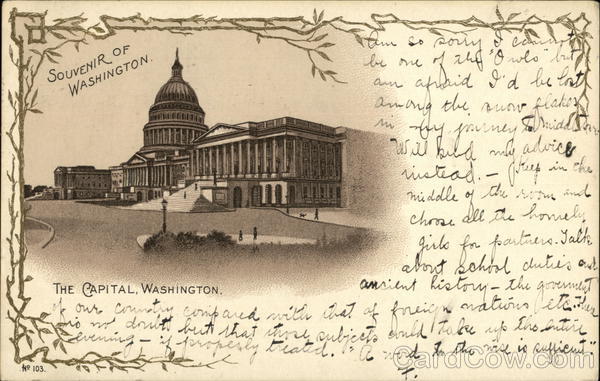 SOUVENIR OF
WASHINGTON.
Am so sorry I cannot
be one of the "Owls" but
am afraid I'd be lost
among the snow flakes
in my journey to
Will send my advice
instead. – Keep in the
middle of the room and
choose all the homely
girls for partners. Talk
about school duties and
ancient history – the goverment
THE CAPITAL, WASHINGTON.
of our country compared with that of foreign nations etc. There
is no doubt but that those subjects could take up the entire
evening – if properly treated. "A word to the wise is sufficient"
F.
No 103.
CardCow.com